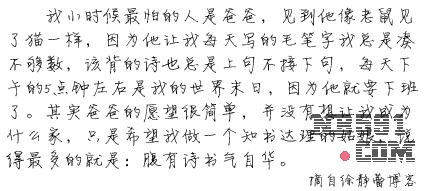 我小时候最怕的人是爸爸，见到他像老鼠见
了猫一样，因为他让我每天写的毛笔字我总是凑
不够数，该背的诗也总是上句不接下句，每天下
午的5点钟左右是我的世界末日，因为他就要下班
了。其实爸爸的愿望很简单，并没有想让我成为
什么家，只是希望我做一个知书达理的姑娘，说
得最多的就是：腹有诗书气自华。
摘自徐静蕾博客
.COM